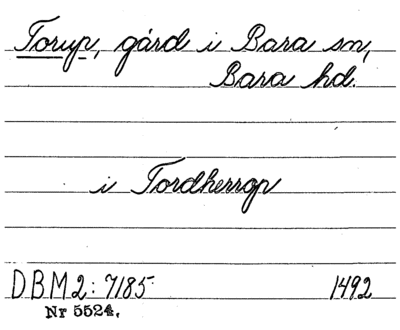 Torup, gård i Bara sn,
Bara hd.
i Tordherrop
DBM 2: 7185 1492
Nr 5524.